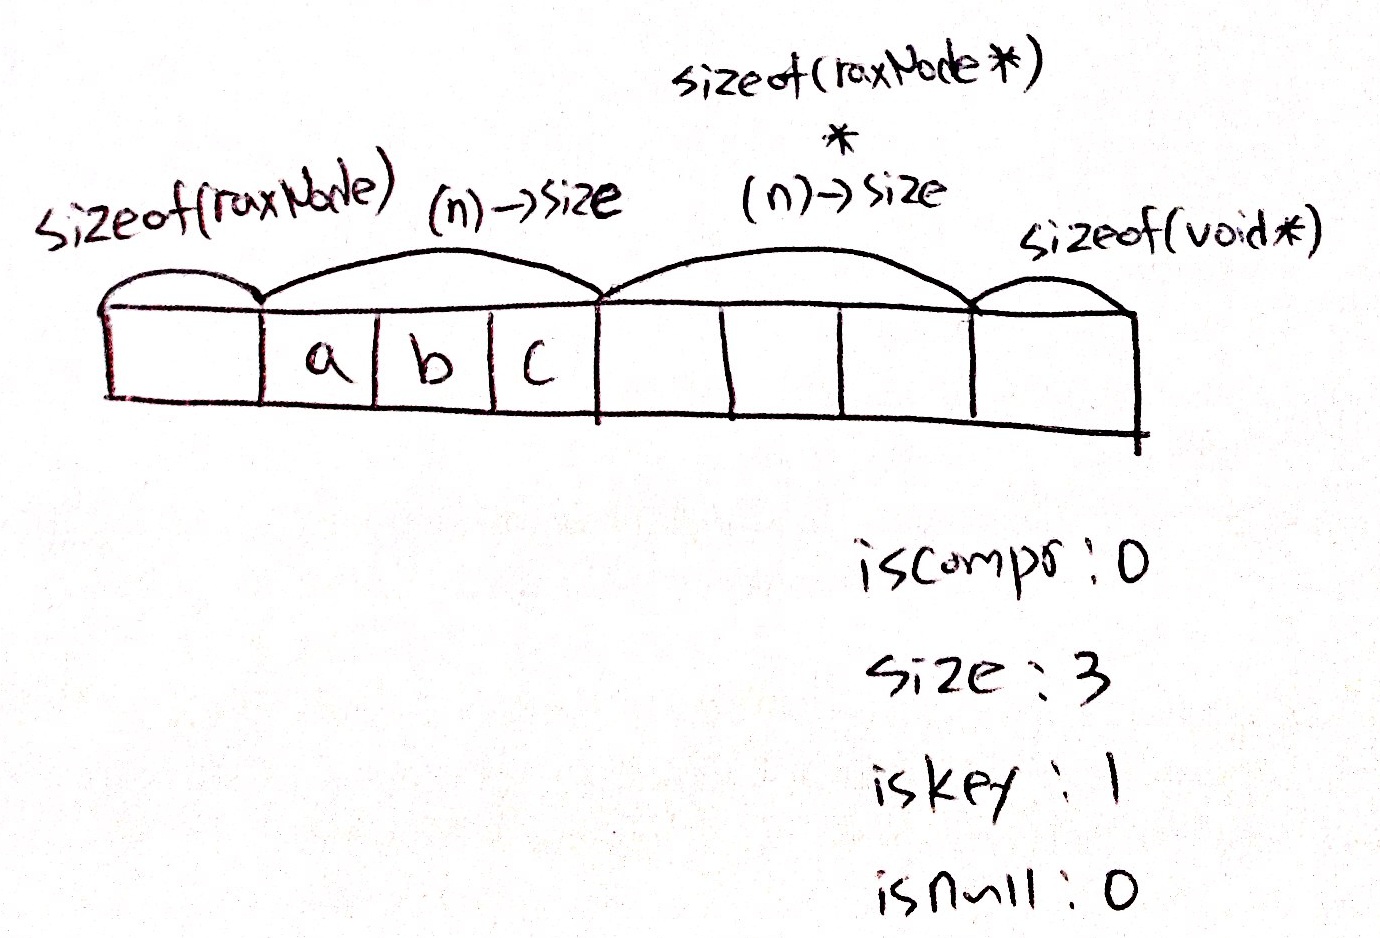 sizeof(raxNode*)
*
sizeof(raxNode) (n)->size (n)->size sizeof(void*)
a b c
iscompr : 0
size : 3
iskey : 1
isnull : 0